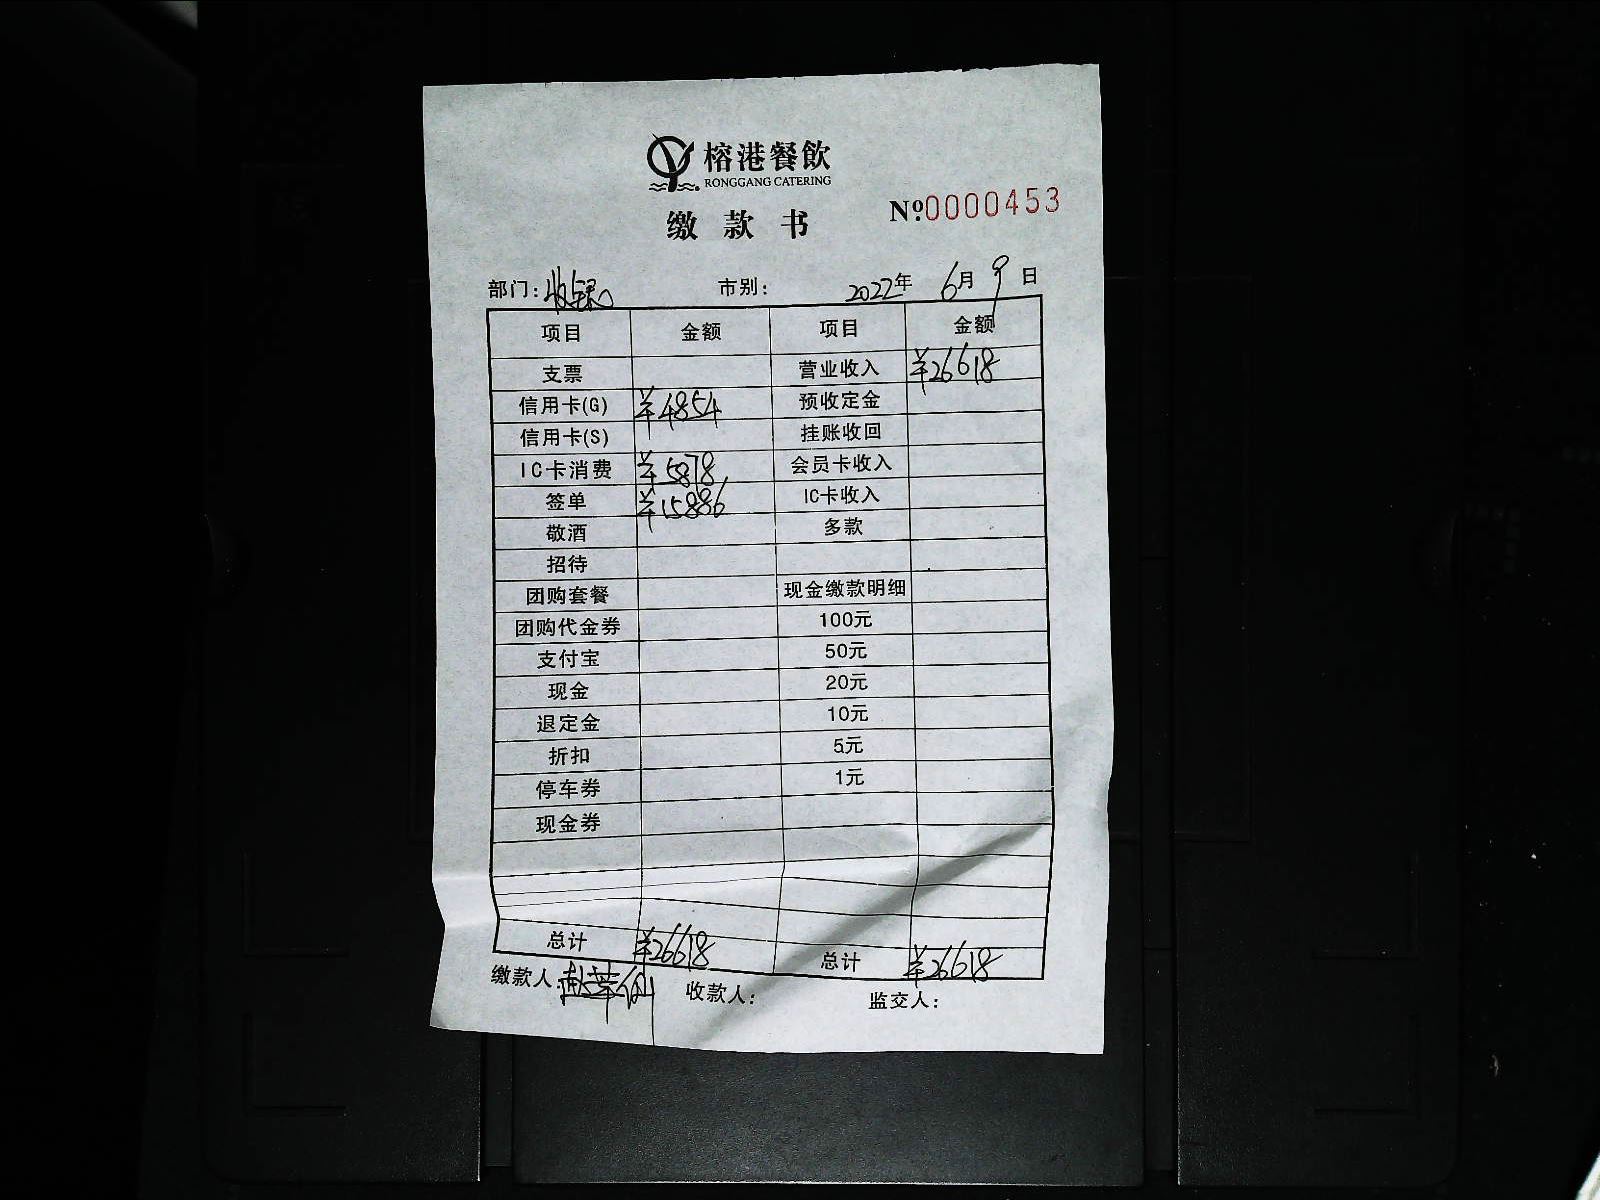 榕港餐飲
RONGGANG CATERING
缴款书
№0000453
部门:收银 市别: 2022年6月9日
项目 金额 项目 金额
支票 营业收入 ¥26618
信用卡(G) ¥4854 预收定金
信用卡(S) 挂账收回
IC卡消费 ¥5878 会员卡收入
签单 ¥15886 IC卡收入
敬酒 多款
招待
团购套餐 现金缴款明细
团购代金券 100元
支付宝 50元
现金 20元
退定金 10元
折扣 5元
停车券 1元
现金券
总计 ¥26618 总计 ¥26618
缴款人: 收款人: 监交人: